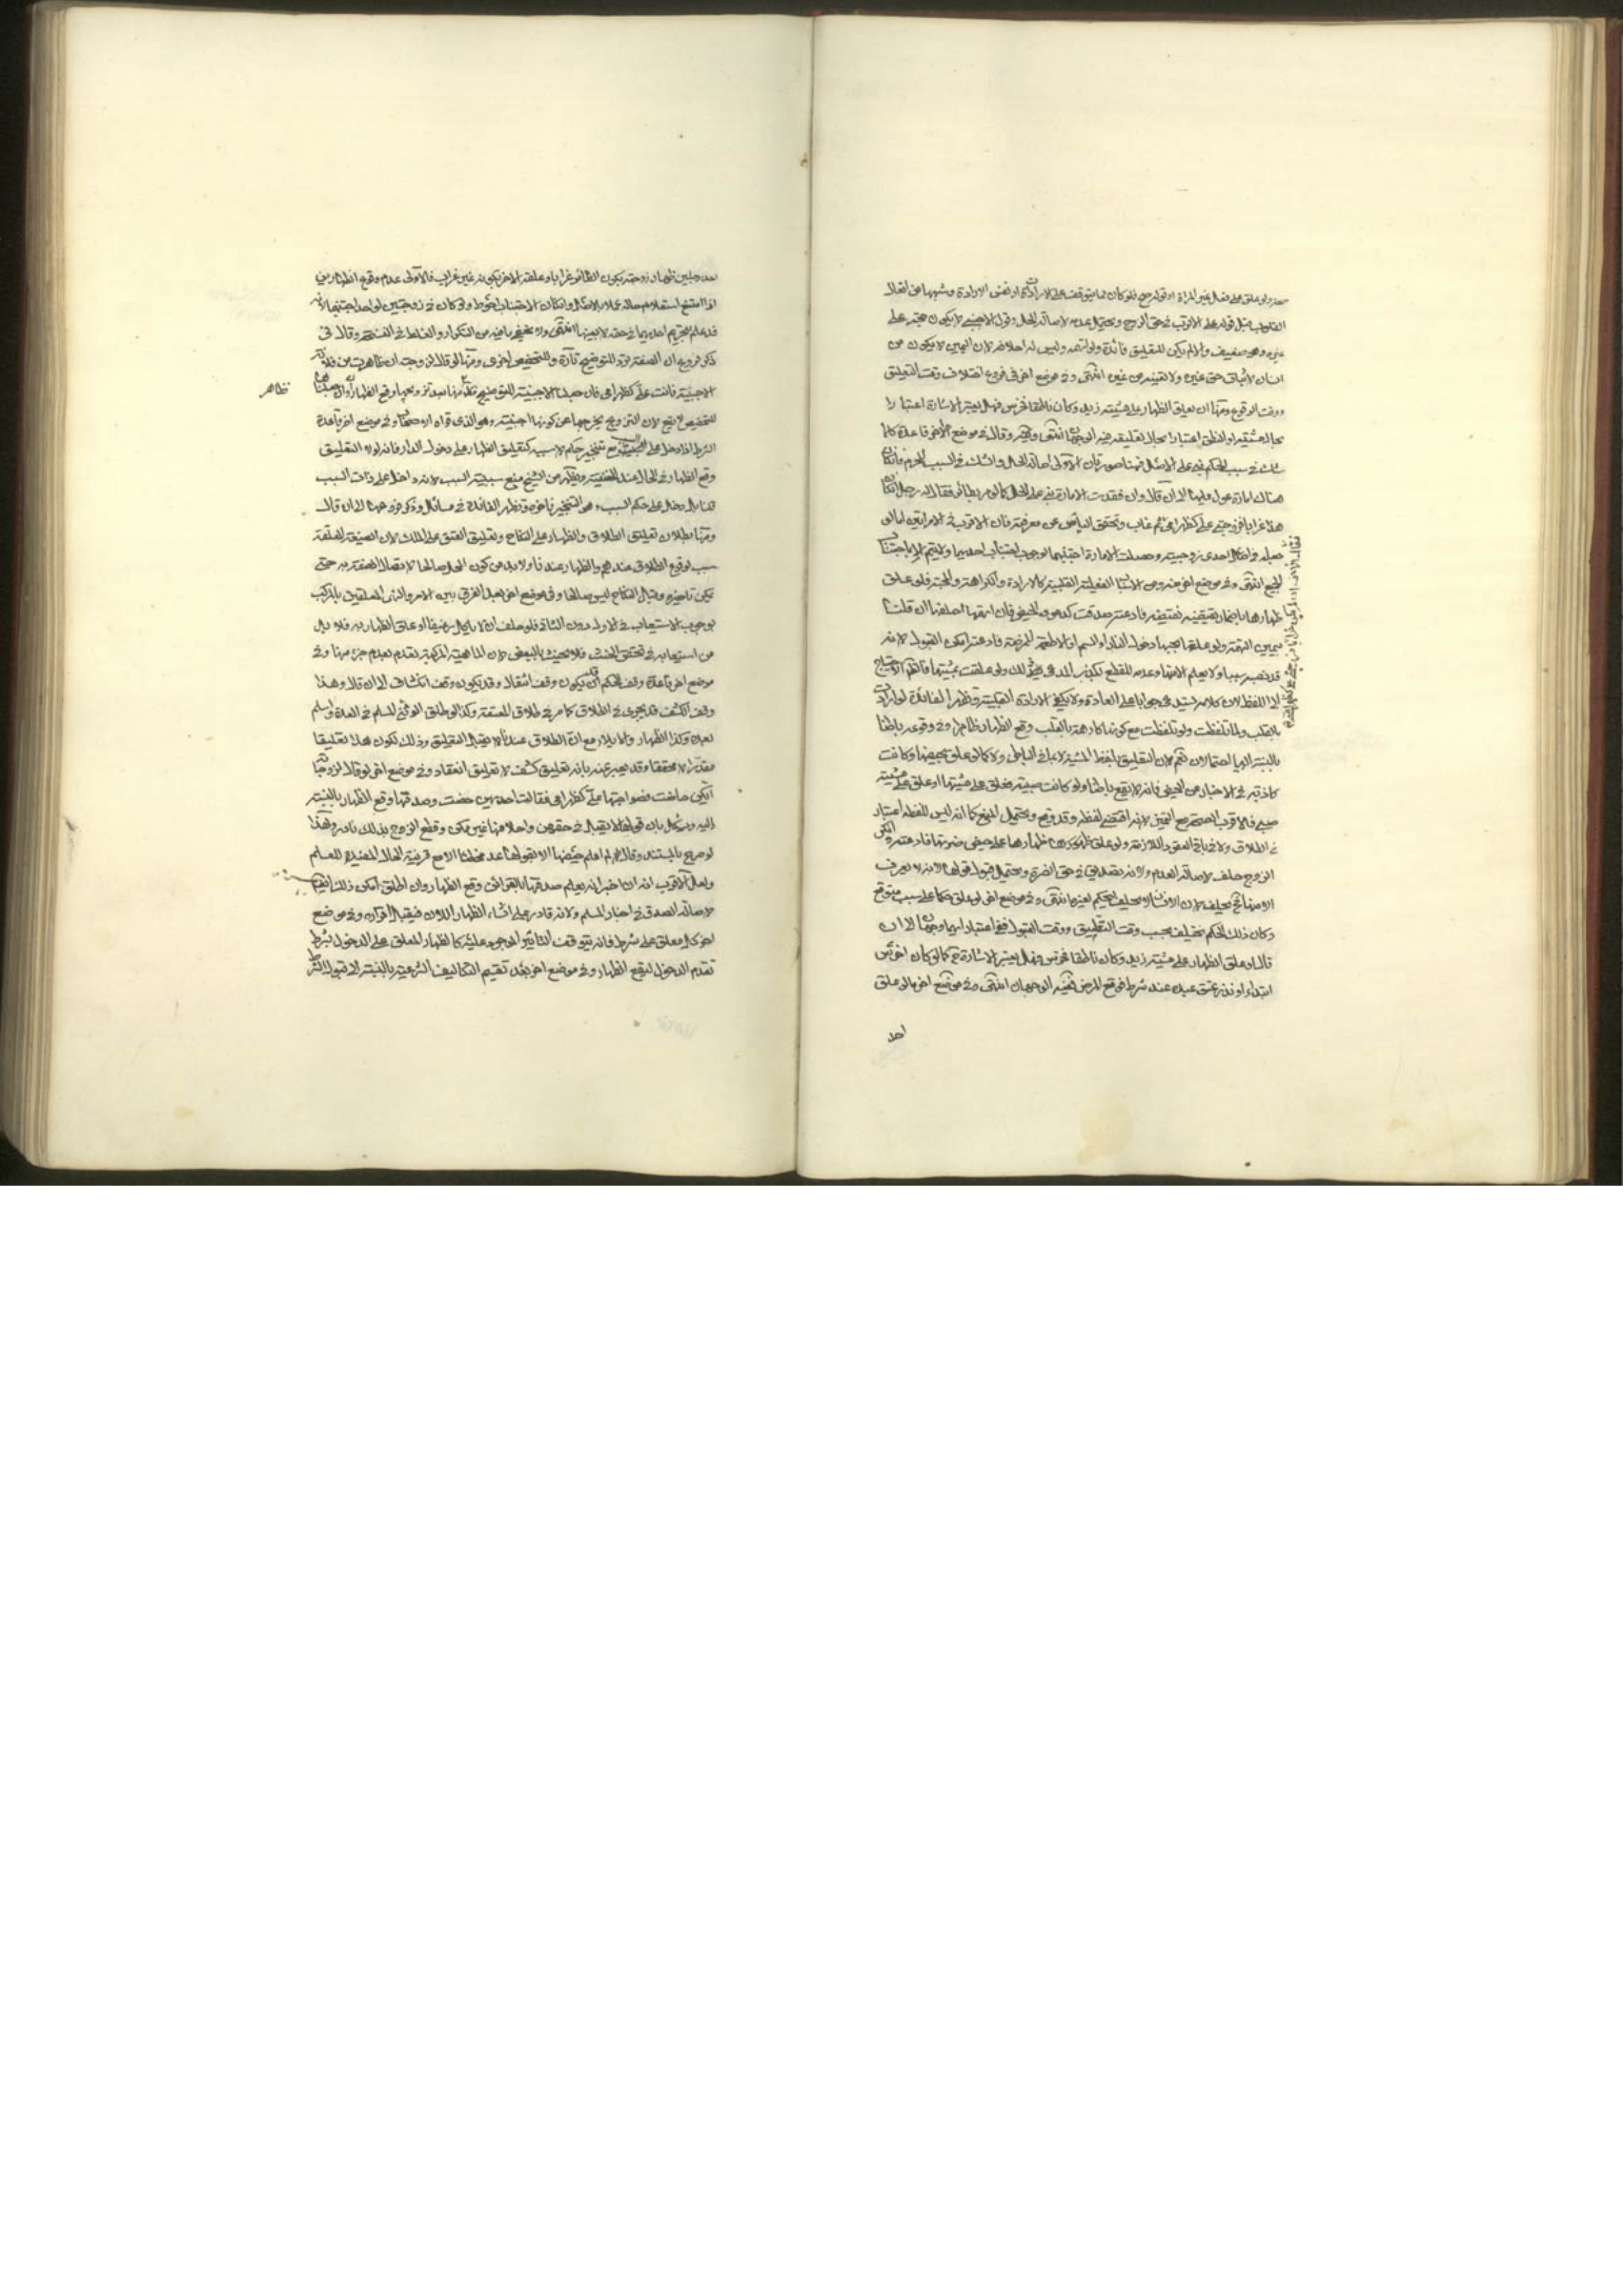 معه ولو علق على فعل غير المراة او قوله صح فلو كان مما يتوقف على الارادة او نفس الارادة وشبهها من افعال
القلوب قبل قوله على الاقرب في حق الزوج ويحتمل عدمه لاصالة الحل وقول الاجنبي لا يكون حجة على
غيره وهو ضعيف والا لم يكن للتعليق فائدة ولو اتهمه وليس له احلافه لان اليمين لا يكون من
انسان لاثبات حق غيره ولا لنفيه عن غيره انتهى وفي موضع اخر في فروع اختلاف وقت التعليق
ووقت الوقوع ومنها ان يعلق الظهار على مشيته زيد وكان ناطقا فخرس فهل يعتبر الاشارة اعتبارا
بحال مشيته او النطق اعتبارا بحال تعليقه فيه الوجهان انتهى وقال في موضع اخر قاعدة كلما
شك في سبب الحكم بني على الاصل فهنا صورتان الاولى اصالة الحل والشك في السبب المحرم فان كان
هناك امارة عول عليها الى ان قال وان فقدت الامارة بني على الحل كما لو رمى طائر فقال رجل ان كان
هذا غرابا فزوجتي علي كظهر امي ثم غاب وتحقق الياس عن معرفته فان الاقرب في الامرأتين
الجميع انتهى وفي موضع اخر الاشياء الفعلية القلبية كالارادة والكراهة والمحبة فلو علق
ظهارها باضمار بغضه فادعته صدقت كدعوى الحيض فان اتهمها احلفها ان قلنا
بيمين التهمة ولو علقه بمحبتها دخول النار او السم او الاطعمة الممرضة فادعته امكن القبول لانه
الى اللفظ لان كلامه يستدعي جوابا على العادة ولا يكفي الارادة القلبية وتظهر الفائدة لو ارادت
بالقلب ولما تلفظت ولو تلفظت مع كونها كارهة بالقلب وقع الظهار ظاهرا وفي وقوعه باطنا
بالنسبة اليها احتمالان نعم لان التعليق بلفظ المشية لا بما في الباطن ولا كما لو علق بحيضها وكانت
كاذبة في الاخبار عن الحيض فانه لا يقع باطنا ولو كانت صبية فعلق على مشيتها او علق على مشية
صبي فالاقرب الصحة مع التميز لانه اقتضى لفظه وقد وقع ويحتمل المنع كما انه ليس للفظه اعتبار
في الطلاق ولا في باقي العقود اللازمة ولو علق ظهارها على حيض ضرتها فادعته وانكر
الزوج حلف لاصالة العدم ولانه تصديق في حق الضرة ويحتمل قبول قولها لانه لا يعرف
الا منها ثم يحلف لان الانسان لا يحلف ليحكم لغيره انتهى وفي موضع اخر لو علق حكما على سبب متوقع
وكان ذلك الحكم يختلف بحسب وقت التعليق ووقت القبول ففي اعتبار ايهما وجهان الى ان
قال او علق الظهار على مشيته زيد وكان ناطقا فخرس فهل يعتبر الاشارة ح كما لو كان اخرس
ابتداء او نذر عتق عبده عند شرط فوقع المرض فيه الوجهان انتهى وفي موضع اخر لو علق
احد
بعد جلين ظهار زوجته بكون الطائر غرابا وعلقه الاخر بكونه غير غراب فالاولى عدم وقوع الظهارين
اذا امتنع استعلام حاله عملا بالاصل وان كان الاجتناب احوط ولو كان في زوجتين لواحد اجتنبهما لانه
قد علم تحريم احديهما في حقه لا بعينها انتهى ولا يخفى ما فيه من التكرار والغلط في النسخة وقال في
ذكر فروع ان الصفة ترد للتوضيح تارة وللتخصيص اخرى ومنها لو قال لزوجته ان ظاهرت من فلانة
الاجنبية فانت علي كظهر امي فان جعلنا الاجنبية للتوضيح فظاهرها بعد تزويجها وقع الظهار وان جعلناها
تظاهر
للتخصيص لم يقع لان التزويج يخرجها عن كونها اجنبية وهو الذي قواه الاصحاب وفي موضع اخر قاعدة
الشرط اذا دخل على السبب منع تنجيز حكمه لا سببيته كتعليق الظهار على دخول الدار فانه لولا التعليق
وقع الظهار في الحال عند الحنفية ويظهر من الشيخ منع سببية السبب لانه داخل على ذات السبب
قلنا بل دخل على حكم السبب وهو التنجيز فاخره وتظهر الفائدة في مسائل وذكر فروعها الى ان قال
ومنها بطلان تعليق الطلاق والظهار على النكاح وتعليق العتق على الملك لان الصيغة المعلقة
سبب لوقوع الطلاق عندهم والظهار عندنا ولا بد من كون المحل صالحا لاتصال الصفة به حتى
يمكن تاخيره وقبل النكاح ليس صالحا وفي موضع اخر بعد الفرق بين الامر والنهي المعلقين بالمركب
بوجوب الاستيعاب في الاول دون الثاني فلو حلف ان لا ياكل رغيفا او علق الظهار به فلا بد
من استيعابه في تحقق الحنث فلا يحنث بالبعض لان الماهية المركبة تعدم بعدم جزء منها وفي
موضع اخر قاعدة وقف الحكم قد يكون وقف انتقال وقد يكون وقف انكشاف الى ان قال وهذا
وقف الكشف قد يجري في الطلاق كما مر في طلاق المعتقة وكذا لو طلق الوثني المسلم في العدة واسلم
بعده وكذا الظهار والايلاء مع ان الطلاق عندنا لا يقبل التعليق وذلك لكون هذا تعليقا
مقدرا لا محققا وقد يعبر عنه بانه تعليق كشف لا تعليق انعقاد وفي موضع اخر لو قال لزوجاته
ايتكن حاضت فضراتها علي كظهر امي فقالت احديهن حضت وصدقها وقع الظهار بالنسبة
اليه ويشكل بان قولها لا يقبل في حقهن واحلافها غير ممكن وقطع الزوج بذلك نادر ولهذا
لو صرح بالمستند وقال لم اعلم حيضها الا بقولها عد مخطئا الا مع قرينة الحال المفيدة للعلم
ولعل الاقرب انه ان اخبر انه يعلم صدقها بالقرائن وقع الظهار وان اطلق امكن ذلك ايضا
لاصالة الصدق في اخبار المسلم ولانه قادر على انشاء الظهار الان فيقبل اقراره وفي موضع
اخر كل معلق على شرط فانه يتوقف التاثير الموجود عليه كالظهار المعلق على الدخول يشرط
تقدم الدخول ليقع الظهار وفي موضع اخر بعد تقسيم التكاليف الشرعية بالنسبة الى قبول الشرط